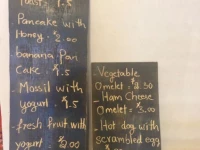 Toast: 1.5
Pancake with
Honey: $2.00
banana Pan
Cake: $1.5
- Mossli with
yogurt: $1.5
- fresh fruit with
yogurt $2.00
- Vegetable
Omelet: $4.50
- Ham Cheese
Omelet: $3.00
- Hot dog with
scrambled egg